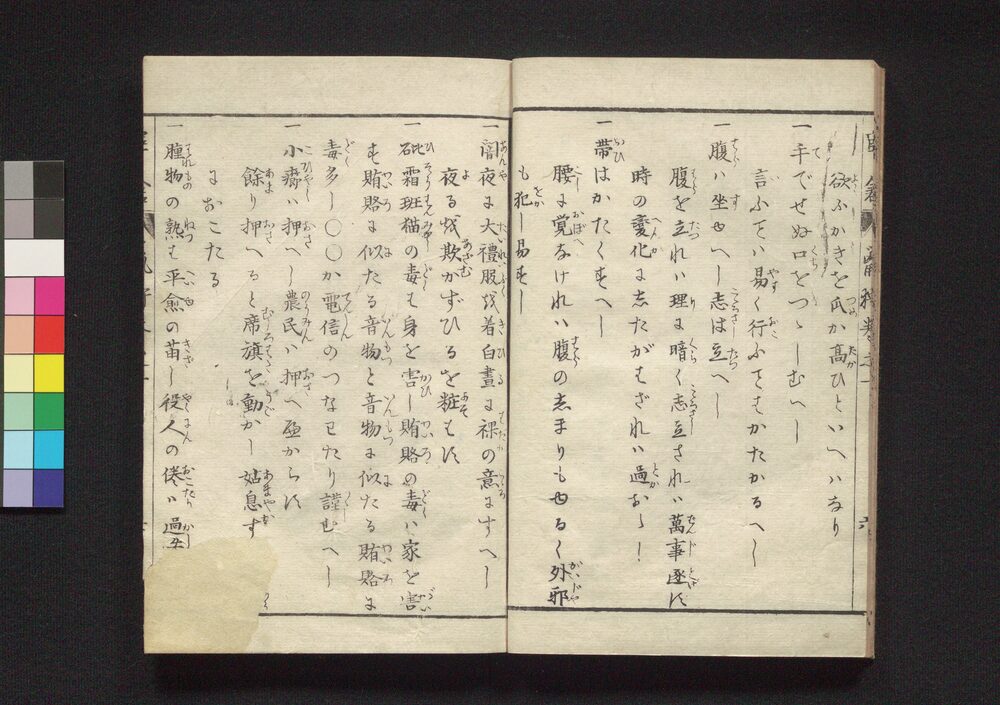 欲ふかきを爪か高ひといへハなり
一手でせぬ口をつゝしむへし
言ふてハ易く行ふてはかたかるへし
一腹ハ坐せへし志は立へし
腹を立れハ理に暗く志立されハ萬事遂げ
時の變化にしたがはざれハ過
一帯はかたくすへし
腰に覚なけれハ腹のしまりもゆるく外邪
も犯し易すし
一闇夜に大禮服を着白晝に裸の意にすへし
夜るを欺かずひるを粧はず
一砒霜斑猫の毒は身を害し賄賂の毒ハ家を害
す賄賂に似たる音物と音物に似たる賄賂は
毒多し〇〇か電信のつなわたり謹むへし
一小瘡ハ押へし農民ハ押へ可からず
餘り押へると席旗を動かし姑息す
におこたる
一腫物の熟は平愈の苗し役人の倦ハ過失